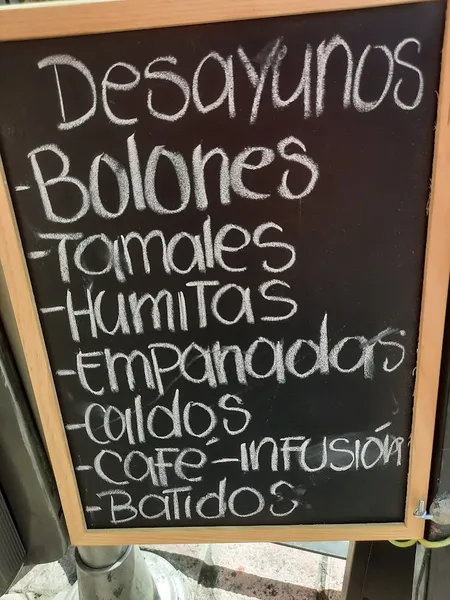 Desayunos
-Bolones
-Tamales
-Humitas
-Empanadas
-Caldos
-Café-infusión
-Batidos